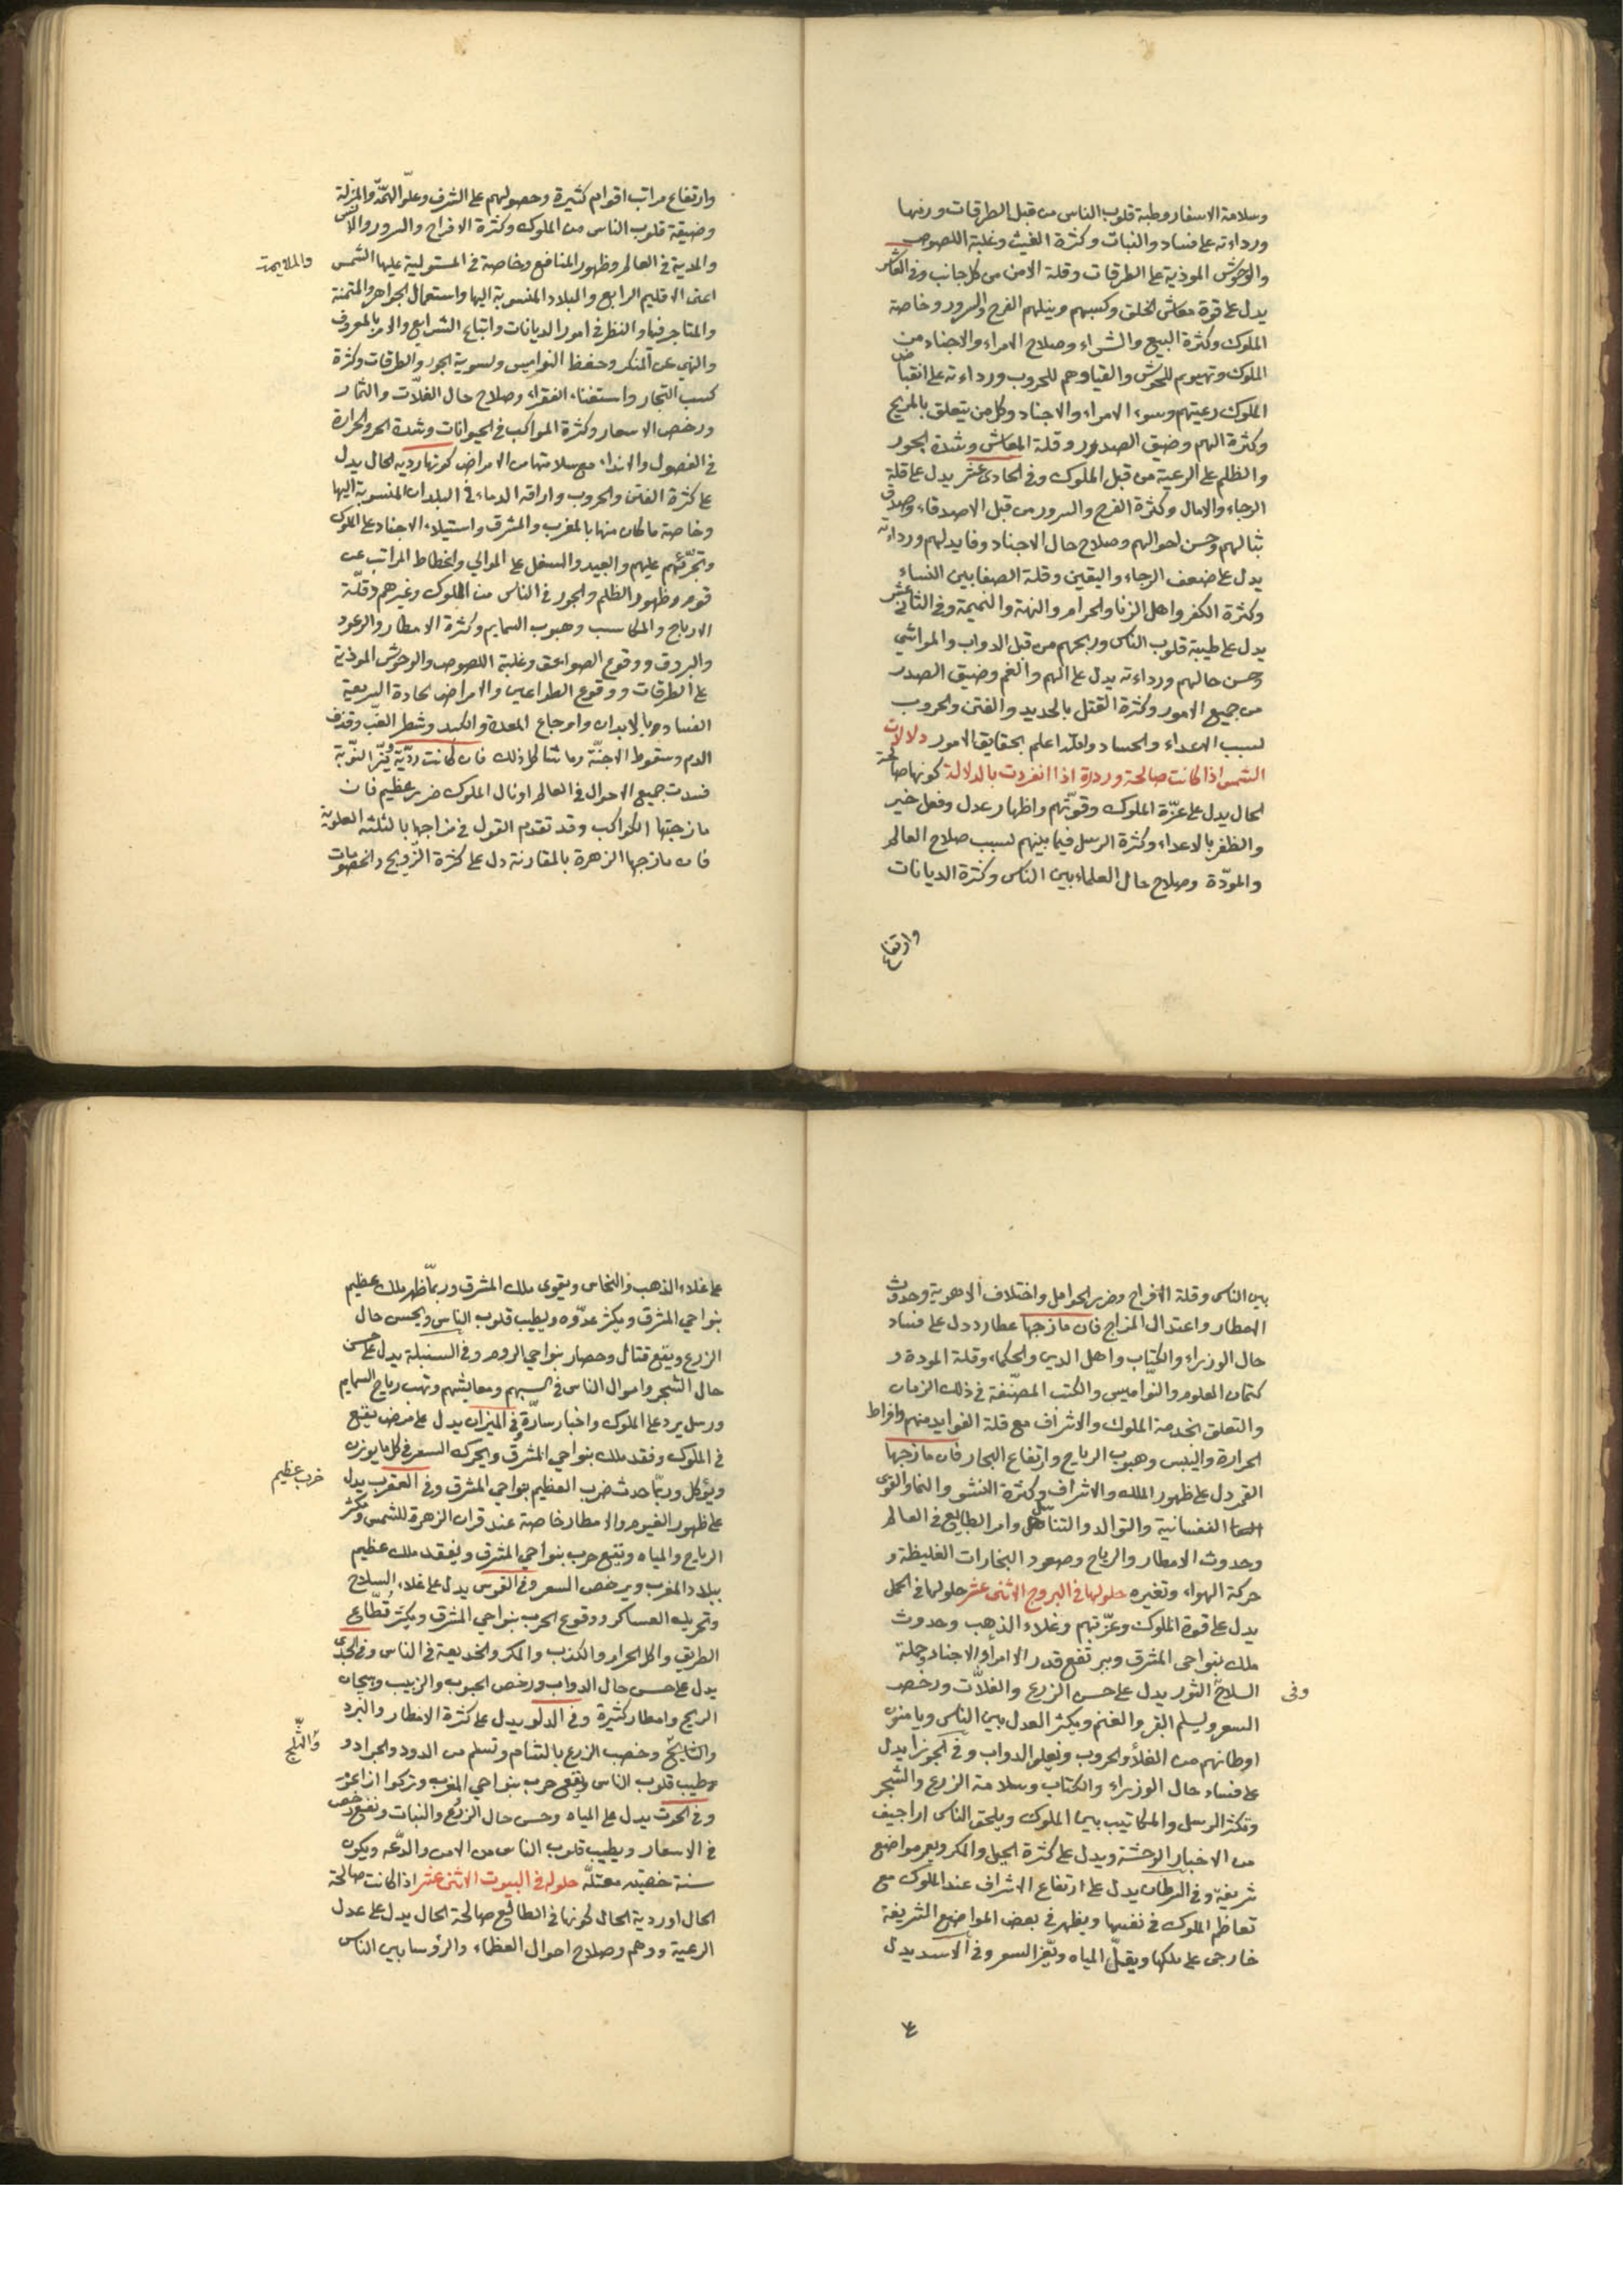 وسلامة الاسفار وطبة قلوب الناس من قبل الطرقات ورفها
ورداءته على فساد والنبات وكثرة الغيث وغلبة اللصوص
والوحوش الموذية على الطرقات وقلة الامن من كل جانب وفى العاشر
يدل على قوة معاش الخلق وكسبهم وينلهم الفرح والسرور وخاصة
الملوك وكثرة البيع والشراء وصلاح الامراء والاجناد من
الملوك وتهيوهم للجوش والقياوهم للحروب ورداءته على انقباض
الملوك رعيتهم وسوء الامراء والاجناد وكل من يتعلق بالمريخ
وكثرة الهم وضيق الصدور وقلة المعاش وشدة الجور
والظلم على الرعية من قبل الملوك وفى الحادى عشر يدل على قلة
الرجاء والامال وكثرة الفرح والسرور من قبل الاصدقاء وصداق
ثبا لهم وحسن احوالهم وصلاح حال الاجناد وفايدلهم ورداءته
يدل على ضعف الرجاء واليقين وقلة الصفا بين النساء
وكثرة الكفر واهل الزنا والحرام والنهة والنميمة وفى الثانى عشر
يدل على طيبة قلوب الناس وربحهم من قبل الدواب والمواشى
وحسن حالهم ورداءته يدل على الهم والغم وضيق الصدر
من جميع الامور وكثرة القتل بالحديد والفتن والحروب
لسبب الاعداء والحساد والله اعلم بحقايق الامور دلالات
الشمس اذا كانت صالحة وردية اذا انفردت بالدلالة كونها صالحة
الحال يدل على عزة الملوك وقوتهم واظهار عدل وفعل خير
والظفر بالاعداء وكثرة الرسل فيما بينهم لسبب صلاح العالم
والمودة وصلاح حال العلماء بين الناس وكثرة الديانات
وارتفاع
وارتفاع مراتب اقوام كثيرة وحصولهم على الشرف وعلو الهمة والمنزلة
وضيقة قلوب الناس من الملوك وكثرة الافراح والسرور والانس
والمدية فى العالم وظهور المنافع وخاصة فى المستولية عليها الشمس
اعنى الاقليم الرابع والبلاد المنسوبة اليها واستعمال الجواهر والمتمنة
والمتاجر فيها والنظر فى امور الديانات واتباع الشرايع والامر بالمعروف
والنهى عن المنكر وحفظ النواميس وتسوية الجور والطرقات وكثرة
كسب التجار واستغناء الفقراء وصلاح حال الغلات والثمار
ورخص الاسعار وكثرة المواكب فى الحيوانات وشدة الحر والحرارة
فى الفصول والانداء مع سلامتها من الامراض كونها ردية الحال يدل
على كثرة الفتن والحروب واراقة الدماء فى البلدان المنسوبة اليها
وخاصة ما كان منها بالمغرب والمشرق واستيلاء الاجناد على الملوك
وتجرئهم عليهم والعبيد والسفل على الموالى وانحطاط المراتب عن
قوم وظهور الظلم والجور فى الناس من الملوك وغيرهم وقلة
الارباح والمكاسب وهبوب السمايم وكثرة الامطار والرعود
والبروق ووقوع الصواعق وغلبة اللصوص والوحوش الموذية
على الطرقات ووقوع الطواعين والامراض الحادة السريعة
الفساد وبالابدان واوجاع المعدة والكبد وشطر الغب وقذف
الدم وسقوط الاجنة وما شاكل ذلك فان كانت ردية ونيّر النوبة
فسدت جميع الاحوال فى العالم او نال الملوك ضرر عظيم فان
مازجتها الكواكب وقد تقدم القول فى مزاجها بالثلثة العلوية
فان مازجها الزهرة بالمقارنة دل على كثرة الزويج والخصومات
بين الناس وقلة الافراح وضرر الحوامل واختلاف الاهوية وحدوث
الامطار واعتدال المزاج فان مازجها عطارد دل على فساد
حال الوزراء والكتاب واهل الدين والحكماء وقلة المودة و
كتمان العلوم والنواميس والكتب المصنفة فى ذلك الزمان
والتعلق بخدمة الملوك والاشراف مع قلة الفوايد منهم وافراط
الحرارة واليبس وهبوب الرياح وارتفاع البحار فان مازجها
القمر دل على ظهور الملك والاشراف وكثرة النشو والنما والقوى
النفسانية والتوالد والتناسل وامر الطبايع فى العالم
وحدوث الامطار والرياح وصعود البخارات الغليظة و
حركة الهواء وتغيره حلولها فى البروج الاثنى عشر حلولها فى الحمل
يدل على قوة الملوك وعزتهم وغلاء الذهب وحدوث
ملك بنواحى المشرق ويرتفع قدر الامراء والاجناد وحملة
السلاح الثور يدل على حسن الزرع والغلات ورخص
وفى
السعر ويسلم البقر والغنم ويكثر العدل بين الناس ويامنون
اوطانهم من الغلا والحروب وتعلو الدواب وفى الجوزا يدل
على فساد حال الوزراء والكتاب وسلامة الزرع والشجر
وتكثر الرسل والمكاتيب بين الملوك ويلحق الناس اراجيف
من الاخبار الوحشة ويدل على كثرة الحيل والمكر ويعمر مواضع
شريفة وفى السرطان يدل على ارتفاع الاشراف عند الملوك مع
تعاظم الملوك فى نفسها ويظهر فى بعض المواضع الشريفة
خارجى على ملكها ويقل المياه ويعز السعر وفى الاسد يدل
على غلاء الذهب والنحاس ويقوى ملك المشرق وربما ظهر ملك عظيم
بنواحى المشرق ويكثر عدوه ويطيب قلوب الناس ويحسن حال
الزرع ويقع قتال وحصار بنواحى الروم وفى السنبلة يدل على حسن
حال الشجر واموال الناس فى كسبهم ومعايشهم وتهب رياح السمايم
ورسل يرد على الملوك واخبار سارة فى الميزان يدل على مرض يقع
فى الملوك وفقد ملك بنواحى المشرق ويحرك السعر فى كل ما يوزن
ويؤكل وربما حدث ضرب العظيم بنواحى المشرق وفى العقرب يدل
حرب عظيم
على ظهور الغيوم والامطار خاصة عند قران الزهرة للشمس ويكثر
الرياح والمياه ويقع حرب بنواحى المشرق ويفقد ملك عظيم
ببلاد المغرب ويرخص السعر وفى القوس يدل على غلاء السلاح
وتحريك العساكر ووقوع الحرب بنواحى المشرق ويكثر قطاع
الطريق واكل الحرام والكذب والمكر والخديعة فى الناس وفى الجدى
يدل على حسن حال الدواب ورخص الحبوب والزبيب وهيجان
الريح وامطار كثيرة وفى الدلو يدل على كثرة الامطار والبرد
وخصب الزرع بالشام وتسلم من الدود والجراد و
والثلج
وطيب قلوب الناس ويقع حرب بنواحى المغرب
وفى الحوت يدل على المياه وحسن حال الزرع والنبات ويقع رخص
فى الاسعار ويطيب قلوب الناس من الامن والدعه ويكون
سنة خصبه معتله حلوله فى البيوت الاثنى عشر اذا كانت صالحة
الحال او ردية الحال كونها فى الطالع صالحة الحال يدل على عدل
الرعية وصلاح احوال العظماء والرؤسا بين الناس